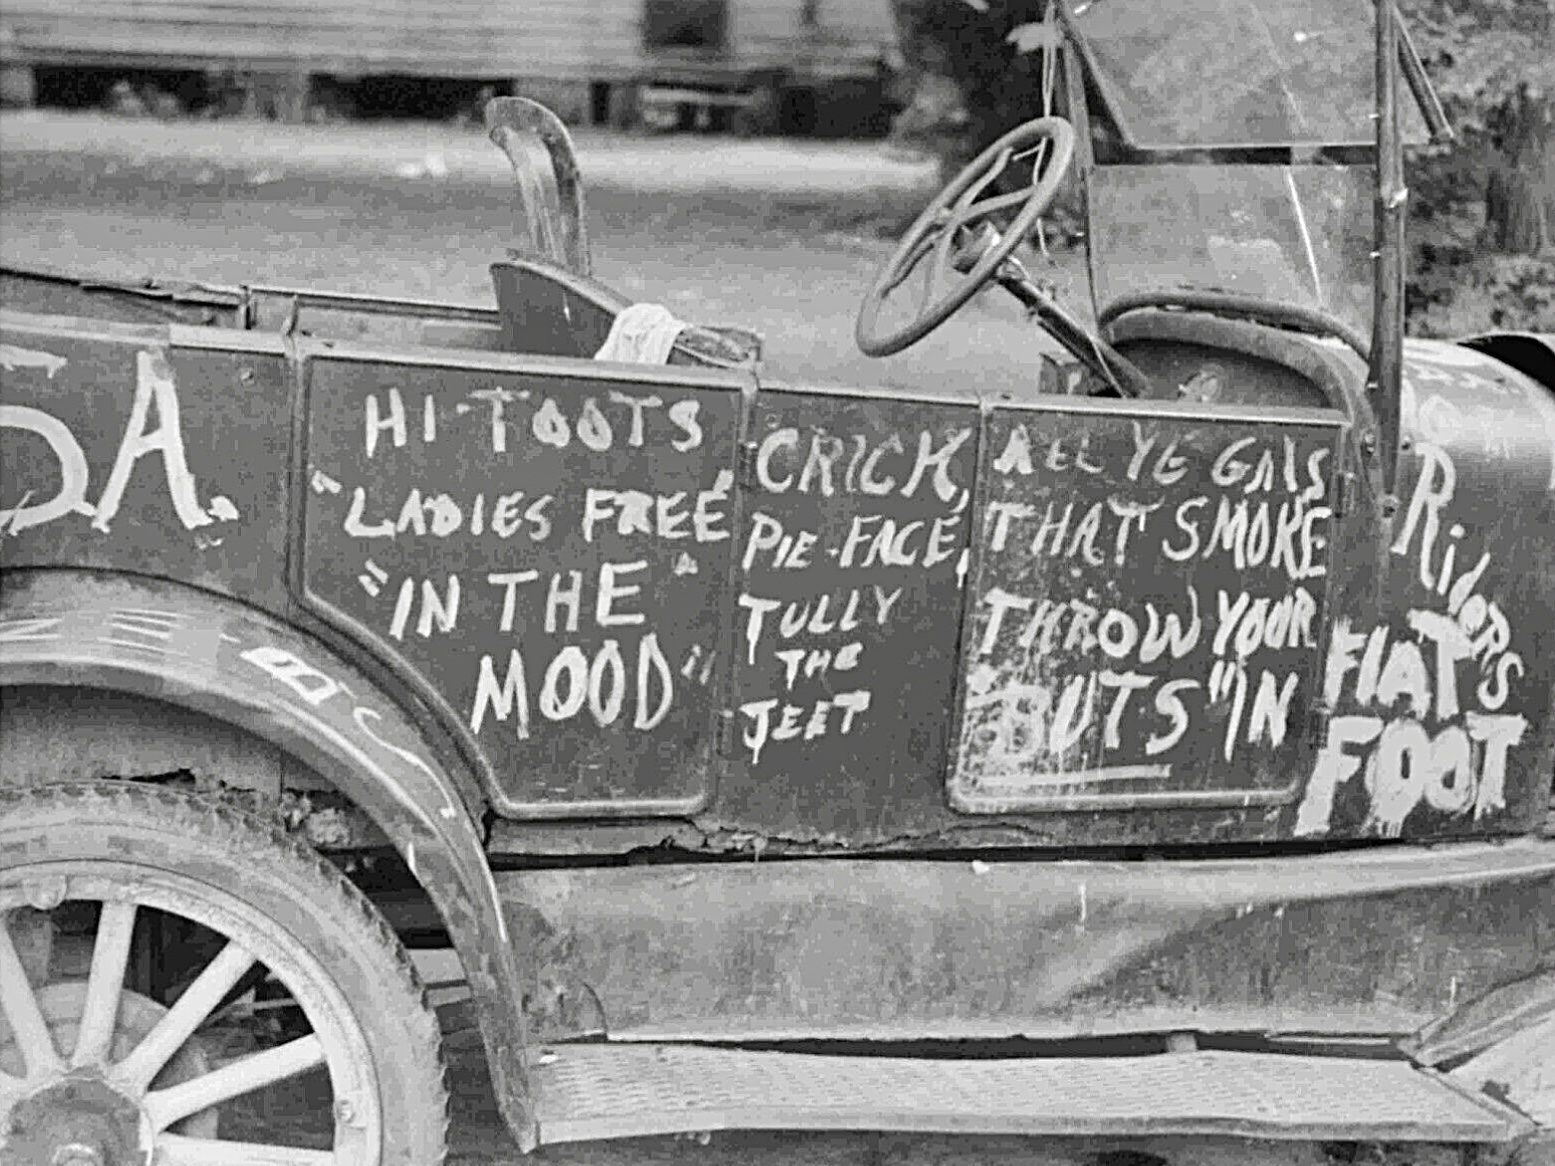 SA.
HI-TOOTS
"LADIES FREE,"
"IN THE
MOOD"
CRICK,
PIE-FACE,
TULLY
THE
JEET
ALL YE GALS
THAT SMOKE
THROW YOUR
"BUTS" IN
RidERS
FLAT
FOOT